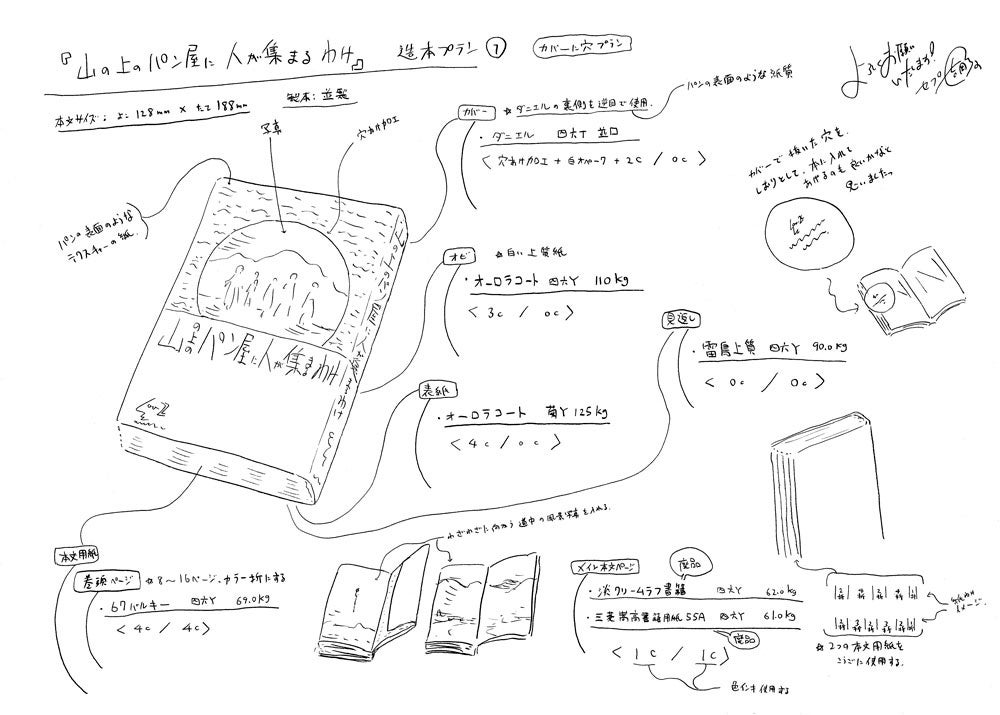 『山の上のパン屋に人が集まるわけ』 造本プラン①
カバーに穴プラン
よろしくお願い
いたします!
本文サイズ:よこ128mm × たて188mm
製本:並製
写真
穴あけ加工
パンの表面のような
テクスチャーの紙
山の上のパン屋に人が集まるわけ
カバー
☆ダニエルの裏側を逆目で使用。
パンの表面のような紙質
・ダニエル 四六T 並口
<穴あけ加工+白オペーク+2c / 0c>
カバーで抜いた穴を、
しおりとして、本に入れて
あげるのも良いかなと
思いました。
オビ
☆白い上質紙
・オーロラコート 四六Y 110kg
<3c / 0c>
表紙
・オーロラコート 菊Y 125kg
<4c / 0c>
見返し
・雷鳥上質 四六Y 90.0kg
<0c / 0c>
本文用紙
巻頭ページ
☆8〜16ページ、カラー折にする
・b7バルキー 四六Y 69.0kg
<4c / 4c>
わざわざに向かう道中の風景写真を入れる。
メイン本文ページ
廃品
・淡クリームラフ書籍 四六Y 62.0kg
・三菱嵩高書籍用紙55A 四六Y 61.0kg
廃品
<1c / 1c>
色インキ使用する
☆2つの本文用紙を
こうごに使用する。